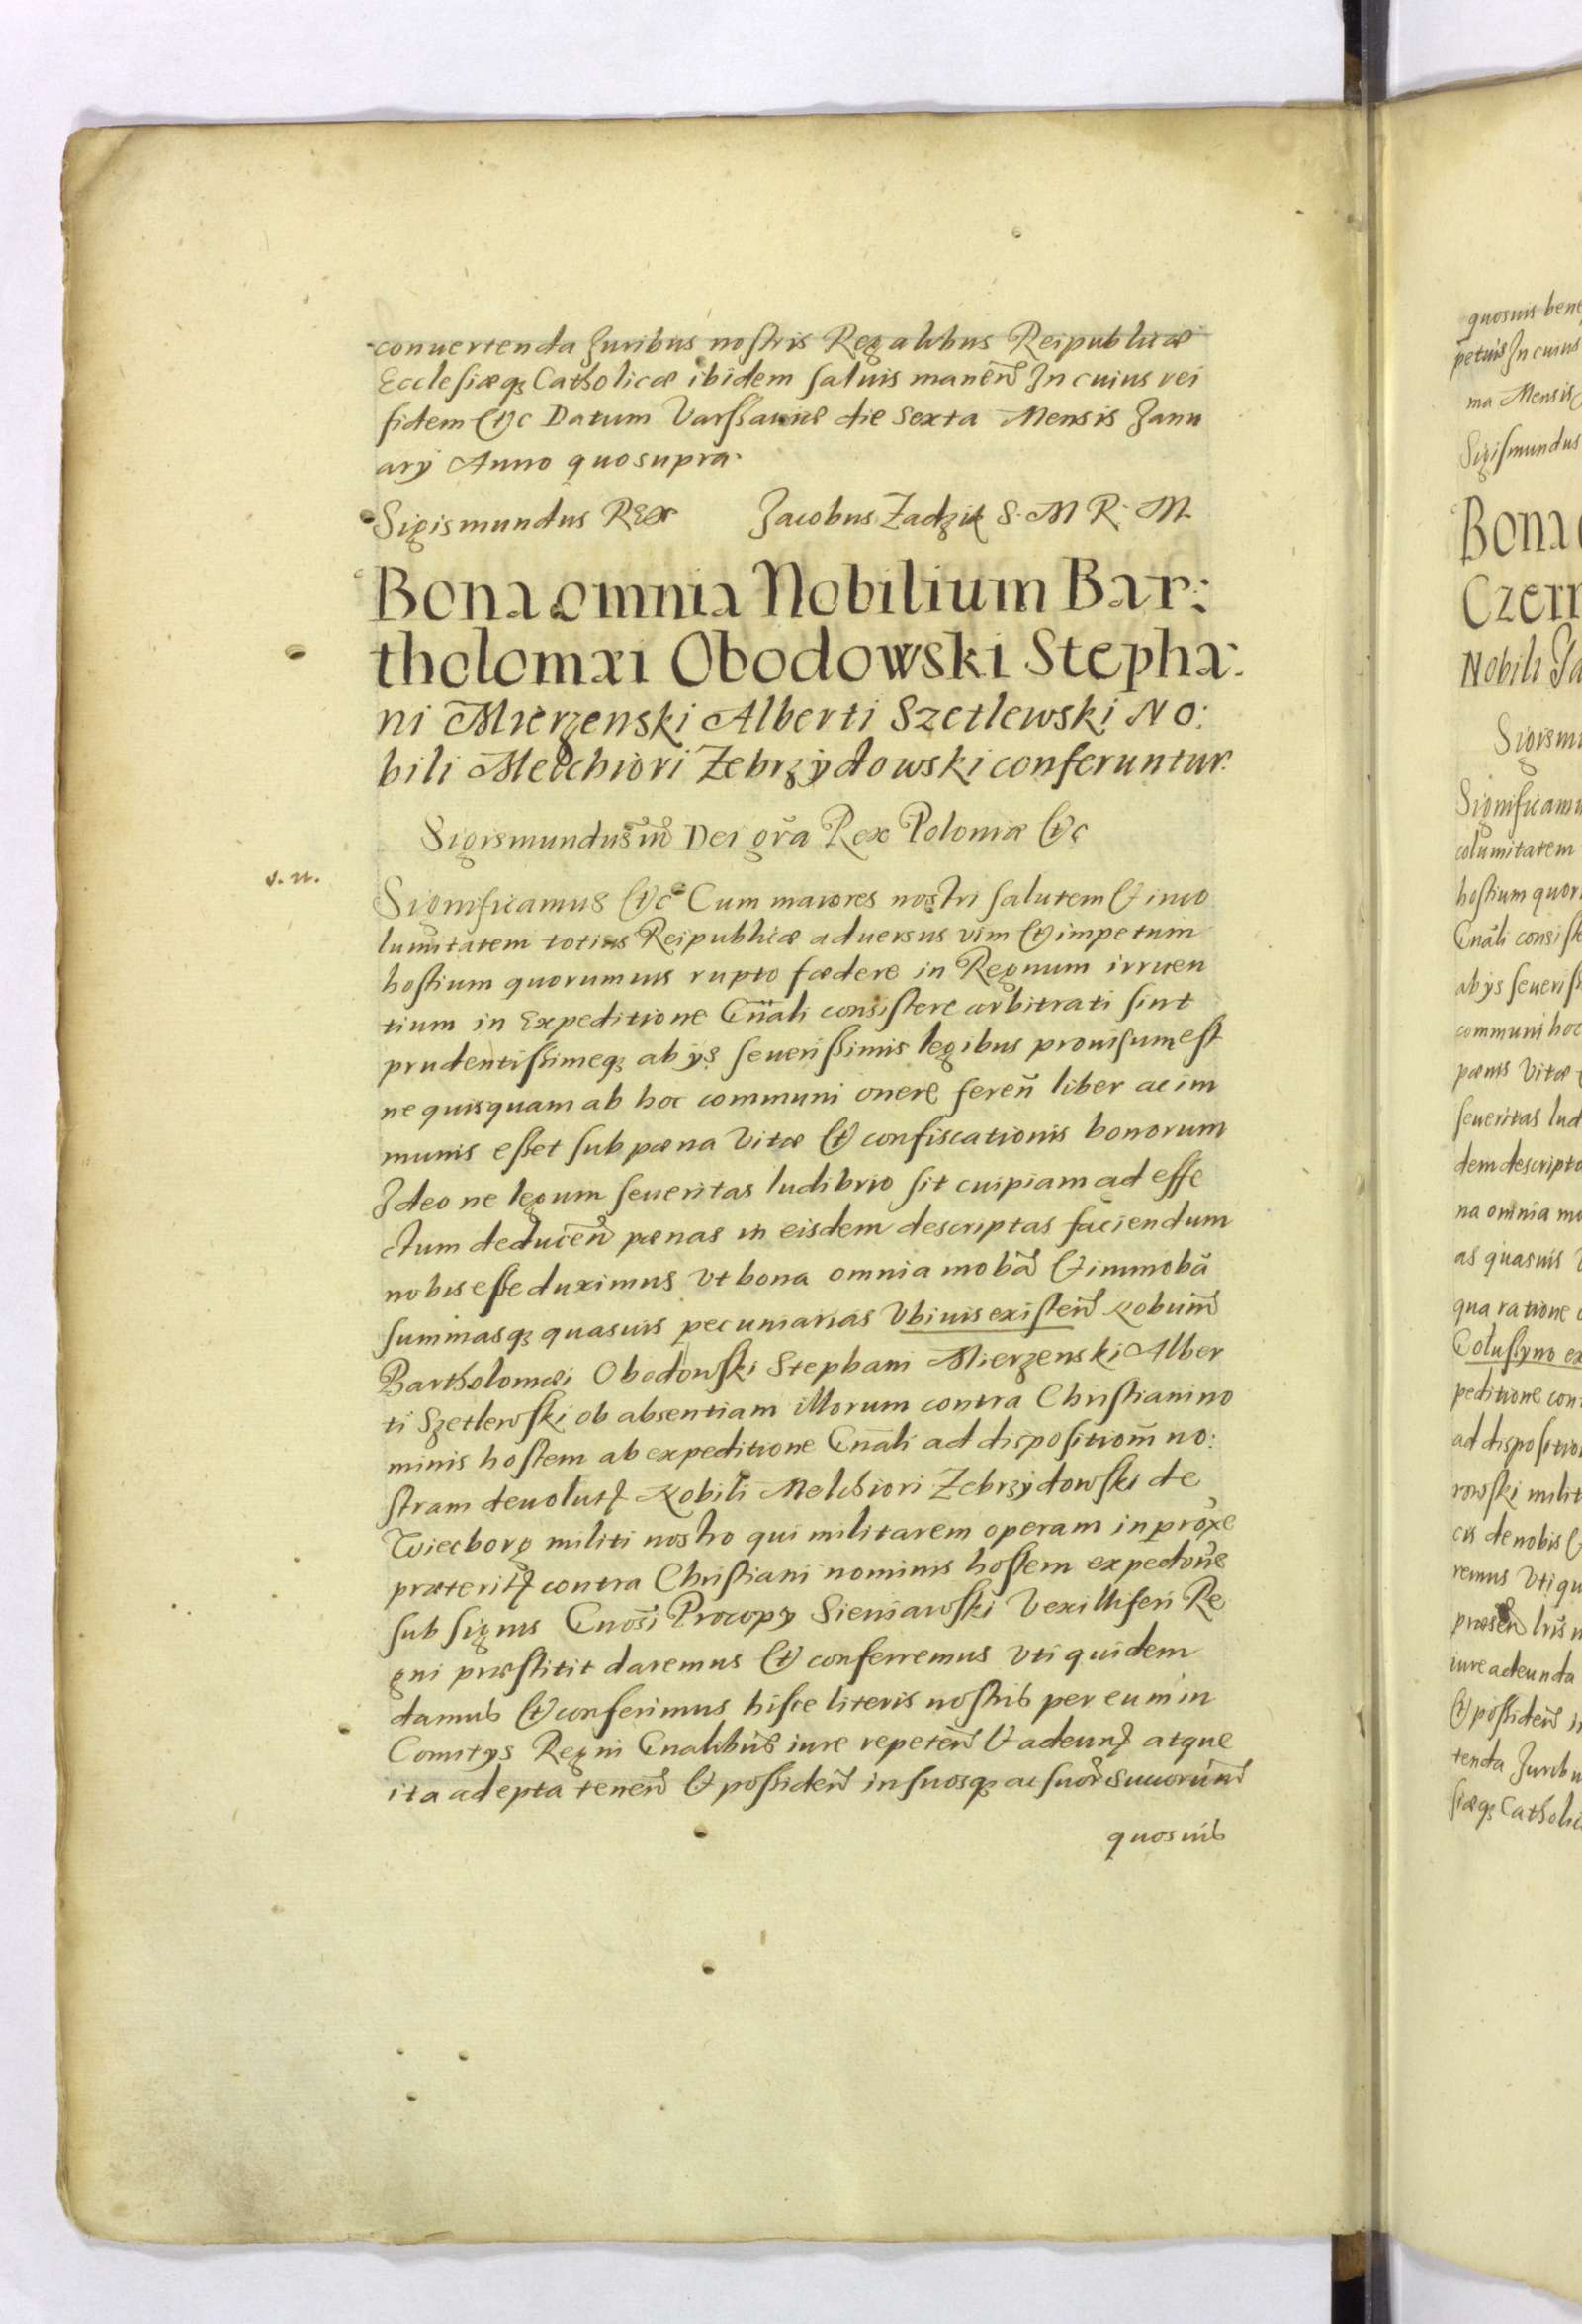 conuertenda Juribus nostris Regalibus Reipublicæ
Ecclesiæq₃ Catholicæ ibidem saluis manen̄ In cuius rei
fidem &c Datum Varssauiæ die Sexta Mensis Janu
arÿ Anno quo supra.
Sigismundus REx Jacobus Zadzik S. M R. M.
Bona omnia Nobilium Bar:
tholomæi Obodowski Stepha:
ni Mierzenski Alberti Szetlewski No:
bili Melchiori Zebrzydowski conferuntur.
Sigismundus iii͂ Dei gr̄a Rex Poloniæ &c
v. n.
Significamus &c Cum maiores nostri salutem & inco
lumitatem totius Reipublicæ aduersus vim & impetum
hostium quorumuis rupto fœdere in Regnum irruen
tium in Expeditione Gn̄ali consistere arbitrati sint
prudentissimeq₃ ab ÿs seuerissimis legibus prouisum est
ne quisquam ab hoc communi onere feren̄ liber ac im
munis esset sub pœna Vitæ & confiscationis bonorum
Ideo ne legum seueritas ludibrio sit cuipiam ad effe
ctum deducen̄ pœnas in eisdem descriptas faciendum
nobis esse duximus Vt bona omnia mobā & immobā
summasq₃ quasuis pecuniarias Vbiuis existen̄ Nobiliū
Bartholomæi Obodowski Stephani Mierzenski Alber
ti Szetlewski ob absentiam illorum contra Christiani no
minis hostem ab expeditione Gn̄ali ad dispositiom̄ no:
stram deuolutꝭ Nobili Melchiori Zebrzydowski de
Wiecborg militi nostro qui militarem operam in prox̄e
præteritꝭ contra Christiani nominis hostem expedtōne
sub signis Gn̄osi Procopÿ Sieniawski Vexilliferi Re
gni præstitit daremus & conferremus Vti quidem
damus & conferimus hisce literis nostris per eum in
Comitÿs Regni Gn̄alibūs iure repeten̄ & adeunꝭ atque
ita adepta tenen̄ & possiden̄ in suosq₃ ac suor̄ Succorum̄
quosuis
quosuis bene
petuis In cuius
ma Mensis
Sigismundus
Bona
Czern
Nobili Ja
Sigismu
Significamu
columitatem
hostium quor
Gn̄ali consist
ab ÿs seueriss
communi hoc
pœnis Vitæ &
seueritas lud
dem descripto
na omnia mo
as quasuis V
qua ratione
Colustyno ex
peditione cont
ad dispositio
rowski milit
cis de nobis &
remus Vti qu
præsen̄ lris n
iure adeunda
& possiden̄ in
tenda Juribu
siæq₃ Catholic